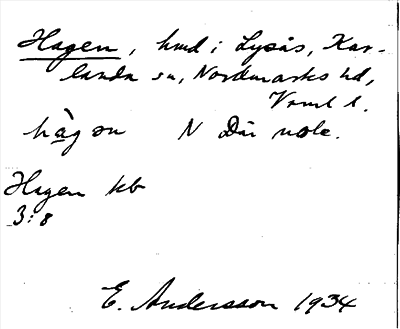 Hagen, hmd i Lysås, Kar-
landa sn, Nordmarks hd,
Vrml l.
hàgən N Där
Hagen kb
3:8
E. Andersson 1934